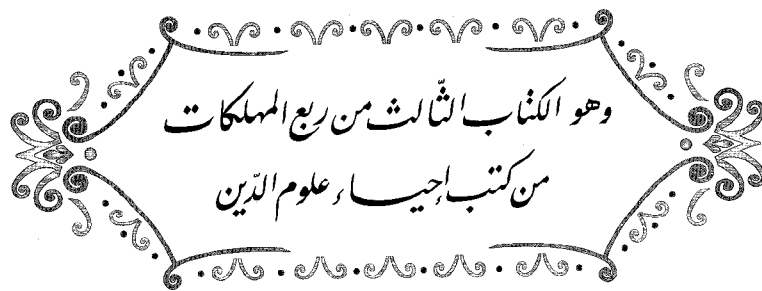 وهو الكتاب الثّالث من ربع المهلكات
من كتب إحياء علوم الدّين